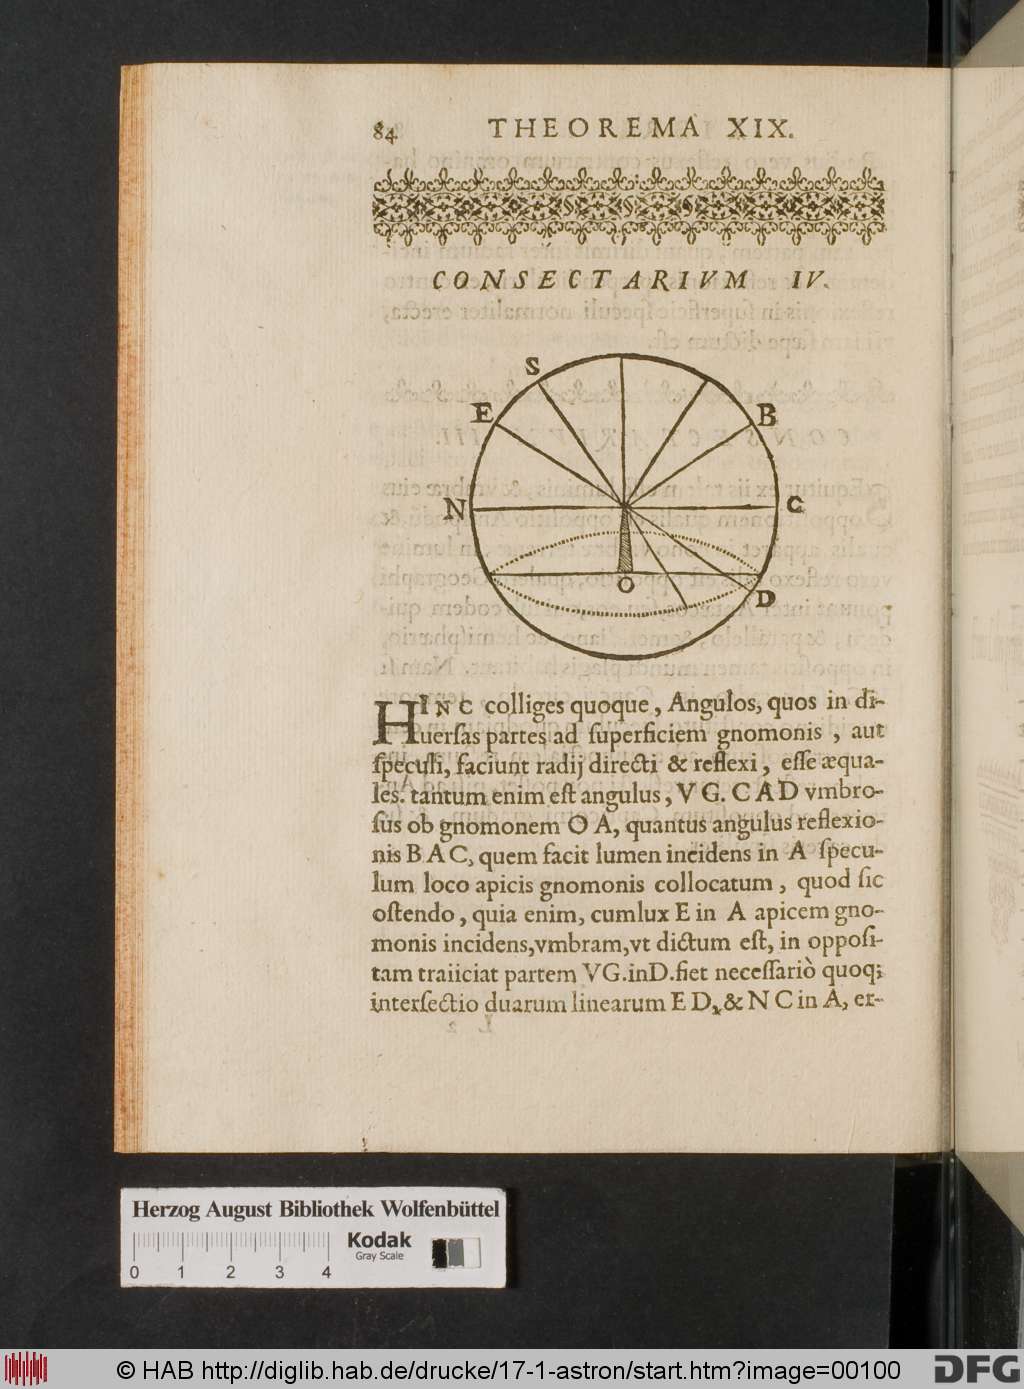 84 THEOREMA XIX.
CONSECTARIVM IV.
S
E
B
N
C
O
D
HINC colliges quoque, Angulos, quos in di-
uersas partes ad superficiem gnomonis, aut
speculi, faciunt radij directi & reflexi, esse æqua-
les. tantum enim est angulus, VG. CAD vmbro-
sus ob gnomonem OA, quantus angulus reflexio-
nis BAC, quem facit lumen incidens in A specu-
lum loco apicis gnomonis collocatum, quod sic
ostendo, quia enim, cumlux E in A apicem gno-
monis incidens, vmbram, vt dictum est, in opposi-
tam traiiciat partem VG. in D. fiet necessariò quoq;
intersectio duarum linearum ED, & NC in A, er-
Herzog August Bibliothek Wolfenbüttel
Kodak
Gray Scale
0 1 2 3 4
© HAB http://diglib.hab.de/drucke/17-1-astron/start.htm?image=00100
DFG